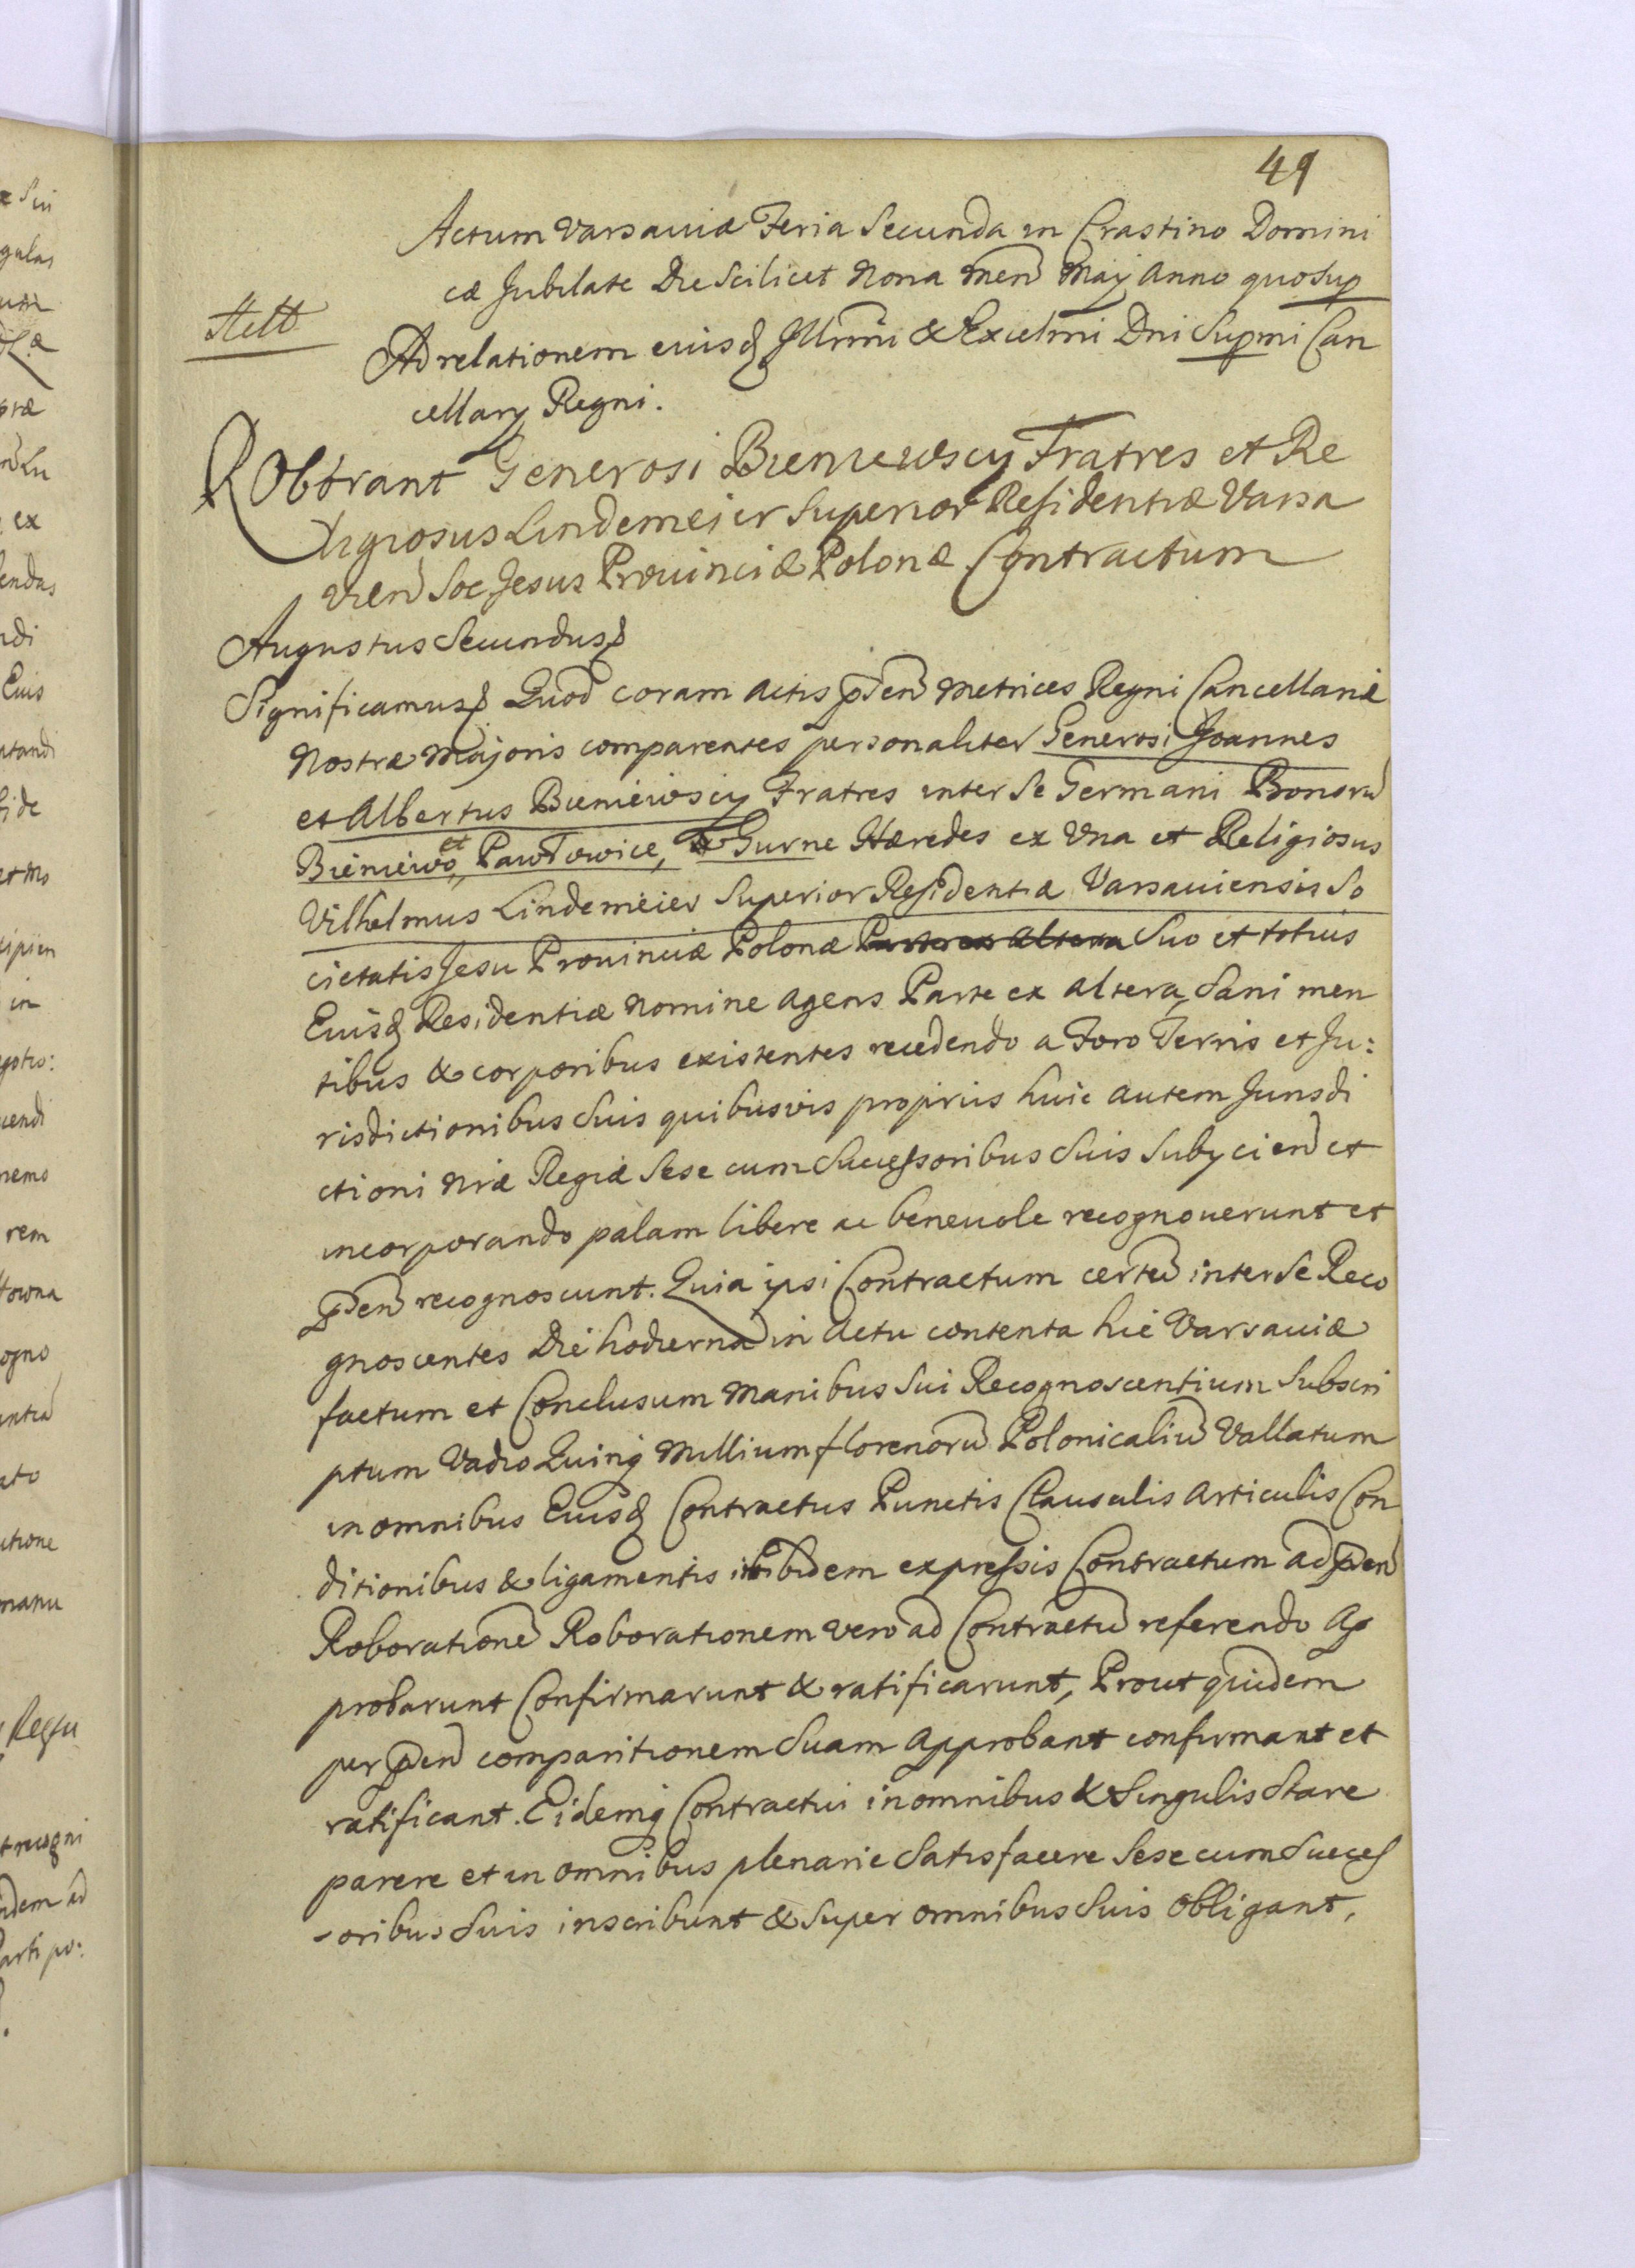 49
Actum Varsaviæ Feria Secunda in Crastino Domini
cæ Jubilate Die Scilicet Nona Men Maÿ Anno quo sup
Ad relationem eiusq Illmi & Excelmi Dni Supmi Can
cellarÿ Regni.
RObbrant Generosi Bieniewscÿ Fratres et Re
ligiosus Lindemeier Superior Residentiæ Varsa
vien Soc Jesus Provinciæ Polonæ Contractum
Augustus Secundus
Significamus Quod coram Actis pden Metrices Regni Cancellariæ
Nostræ Majoris comparentes personaliter Generosi Joannes
et Albertus Bieniewscÿ Fratres inter Se Germani Bonoru
Bieniewo, et Pawłowice, Gurne Hæredes ex Una et Religiosus
Vilhelmus Lindemeier Superior Residentiæ Varsaviensis So
cietatis Jesu Provinciæ Polonæ Parte ex altera Suo et totius
Eiusq Residentiæ Nomine Agens Parte ex altera, Sani men
tibus & corporibus existentes recedendo a Foro Terris et Ju:
risdictionibus Suis quibusvis proprÿs huic autem Jurisdi
ctioni Nræ Regiæ Sese cum Successoribus Suis Subÿcien et
incorporando palam libere ac benevole recognoverunt et
pden recognoscunt. Quia ipsi Contractum certu inter Se Reco
gnoscentes Die hodierna in Actu contenta hic Varsaviæ
factum et Conclusum Manibus Sui Recognoscentium Subscri
ptum Vadio Quinq Millium florenoru Polonicaliu Vallatum
in omnibus Eiusq Contractus Punctis Clausulis Articulis Con
ditionibus & ligamentis ibidem expressis Contractum ad pden
Roboratione Roborationem vero ad Contractu referendo Ap
probarunt Confirmarunt & ratificarunt, Prout quidem
per pden comparitionem Suam Approbant confirmant et
ratificant. Eidemq Contractui in omnibus & Singulis Stare
parere et in omnibus plenarie Satisfacere Sese cum Success
-oribus Suis inscribunt & Super omnibus Suis Obligant,